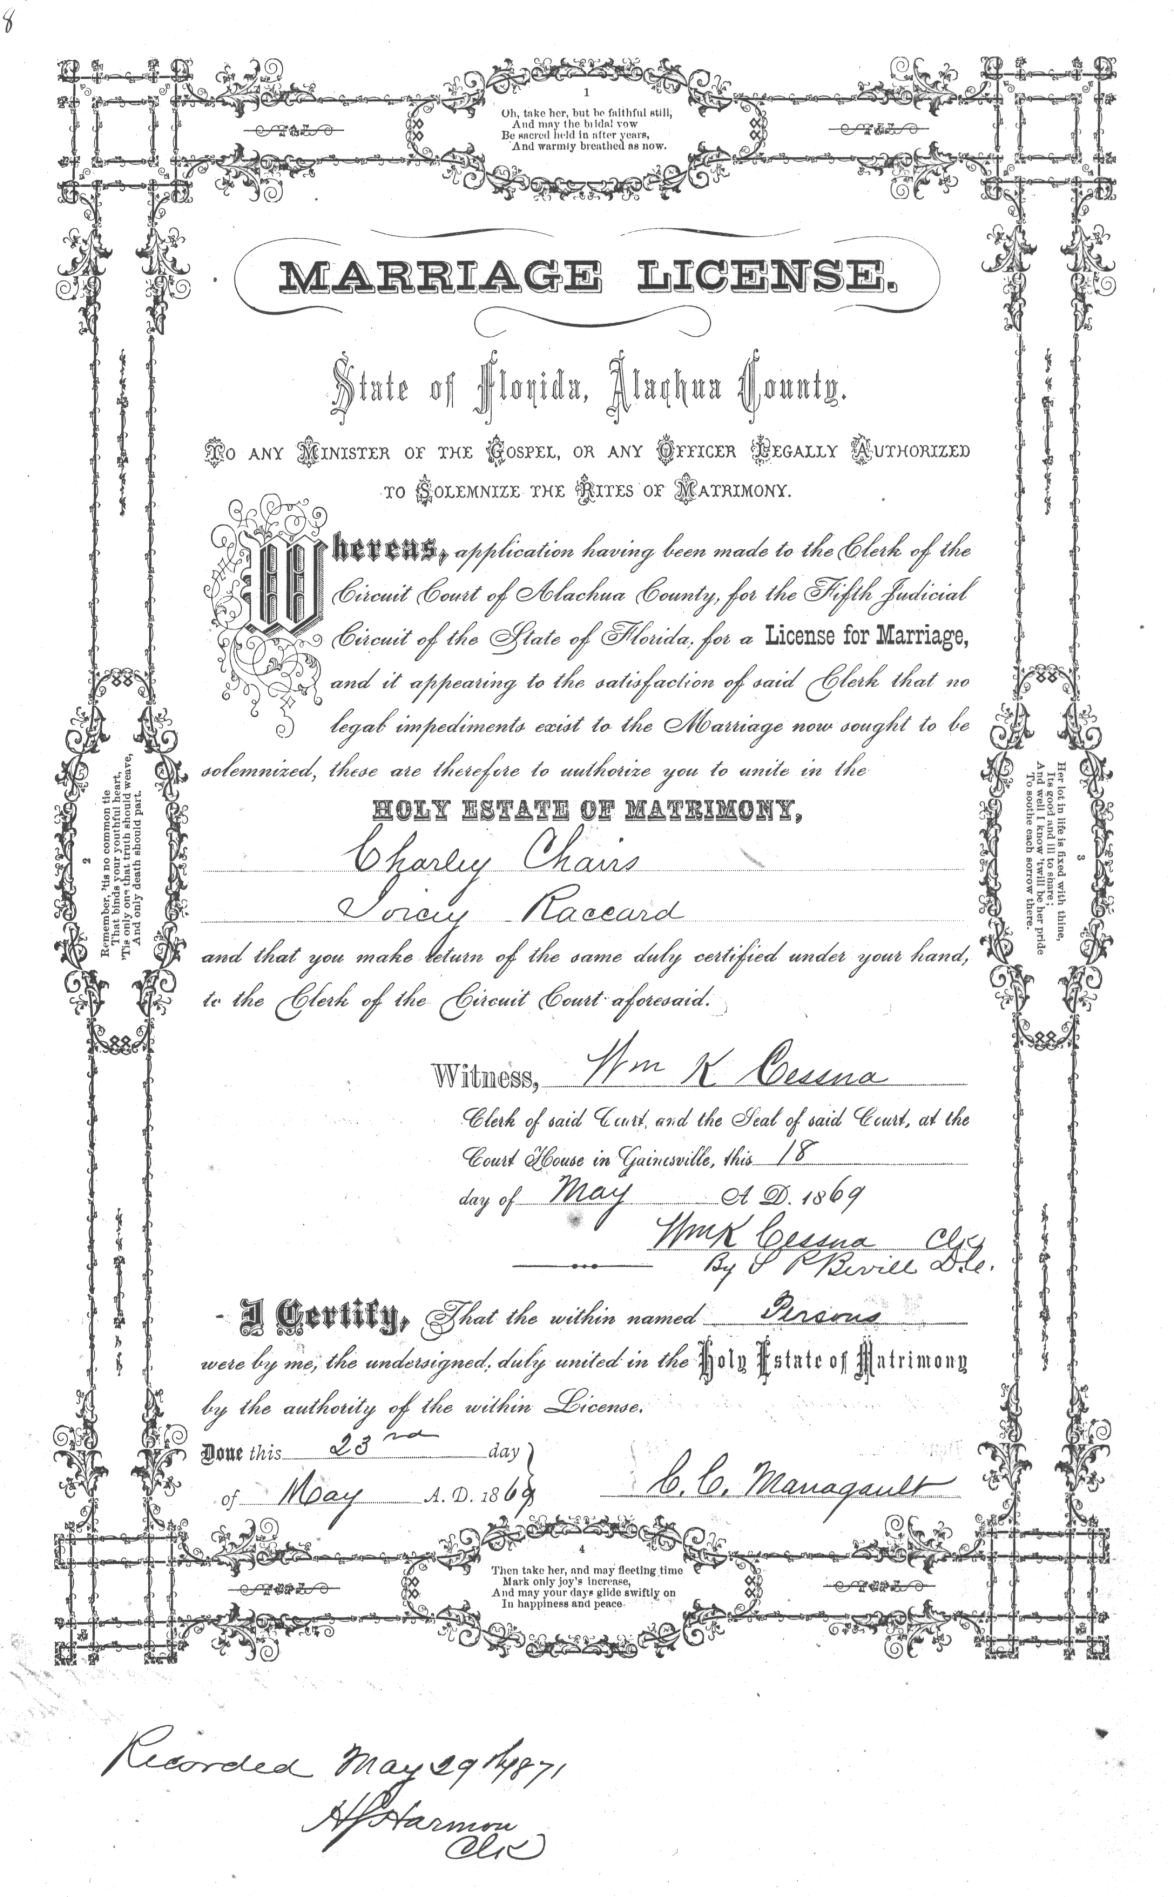 8
1
Oh, take her, but be faithful still,
And may the bridal vow
Be sacred held in after years,
And warmly breathed as now.
MARRIAGE LICENSE.
State of Florida, Alachua County.
TO ANY MINISTER OF THE GOSPEL, OR ANY OFFICER LEGALLY AUTHORIZED
TO SOLEMNIZE THE RITES OF MATRIMONY.
Whereas, application having been made to the Clerk of the
Circuit Court of Alachua County, for the Fifth Judicial
Circuit of the State of Florida, for a License for Marriage,
and it appearing to the satisfaction of said Clerk that no
legal impediments exist to the Marriage now sought to be
solemnized, these are therefore to authorize you to unite in the
HOLY ESTATE OF MATRIMONY,
Charley Chairs
Raccard
and that you make return of the same duly certified under your hand,
to the Clerk of the Circuit Court aforesaid.
2
Remember, 'tis no common tie
That binds your youthful heart,
'Tis only one that truth should weave,
And only death should part.
3
Her lot in life is fixed with thine,
Its good and ill to share;
And well I know 'twill be her pride
To soothe each sorrow there.
Witness, Wm K Cessna
Clerk of said Court, and the Seal of said Court, at the
Court House in Gainesville, this 18
day of May A D. 1869
Wm K Cessna Clk
By S P Bevill D.C.
I Certify, That the within named Persons
were by me, the undersigned, duly united in the Holy Estate of Matrimony
by the authority of the within License.
Done this 23rd day
of May A. D. 1869
C. C. Managault
4
Then take her, and may fleeting time
Mark only joy's increase,
And may your days glide swiftly on
In happiness and peace.
Recorded May 29th 1871
HS Harmon
Clk